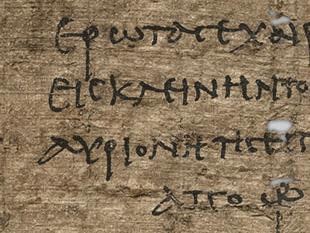 ερωτα σε χαιρ
εις κλεινην το
αυριον ητις εστι
απο ω